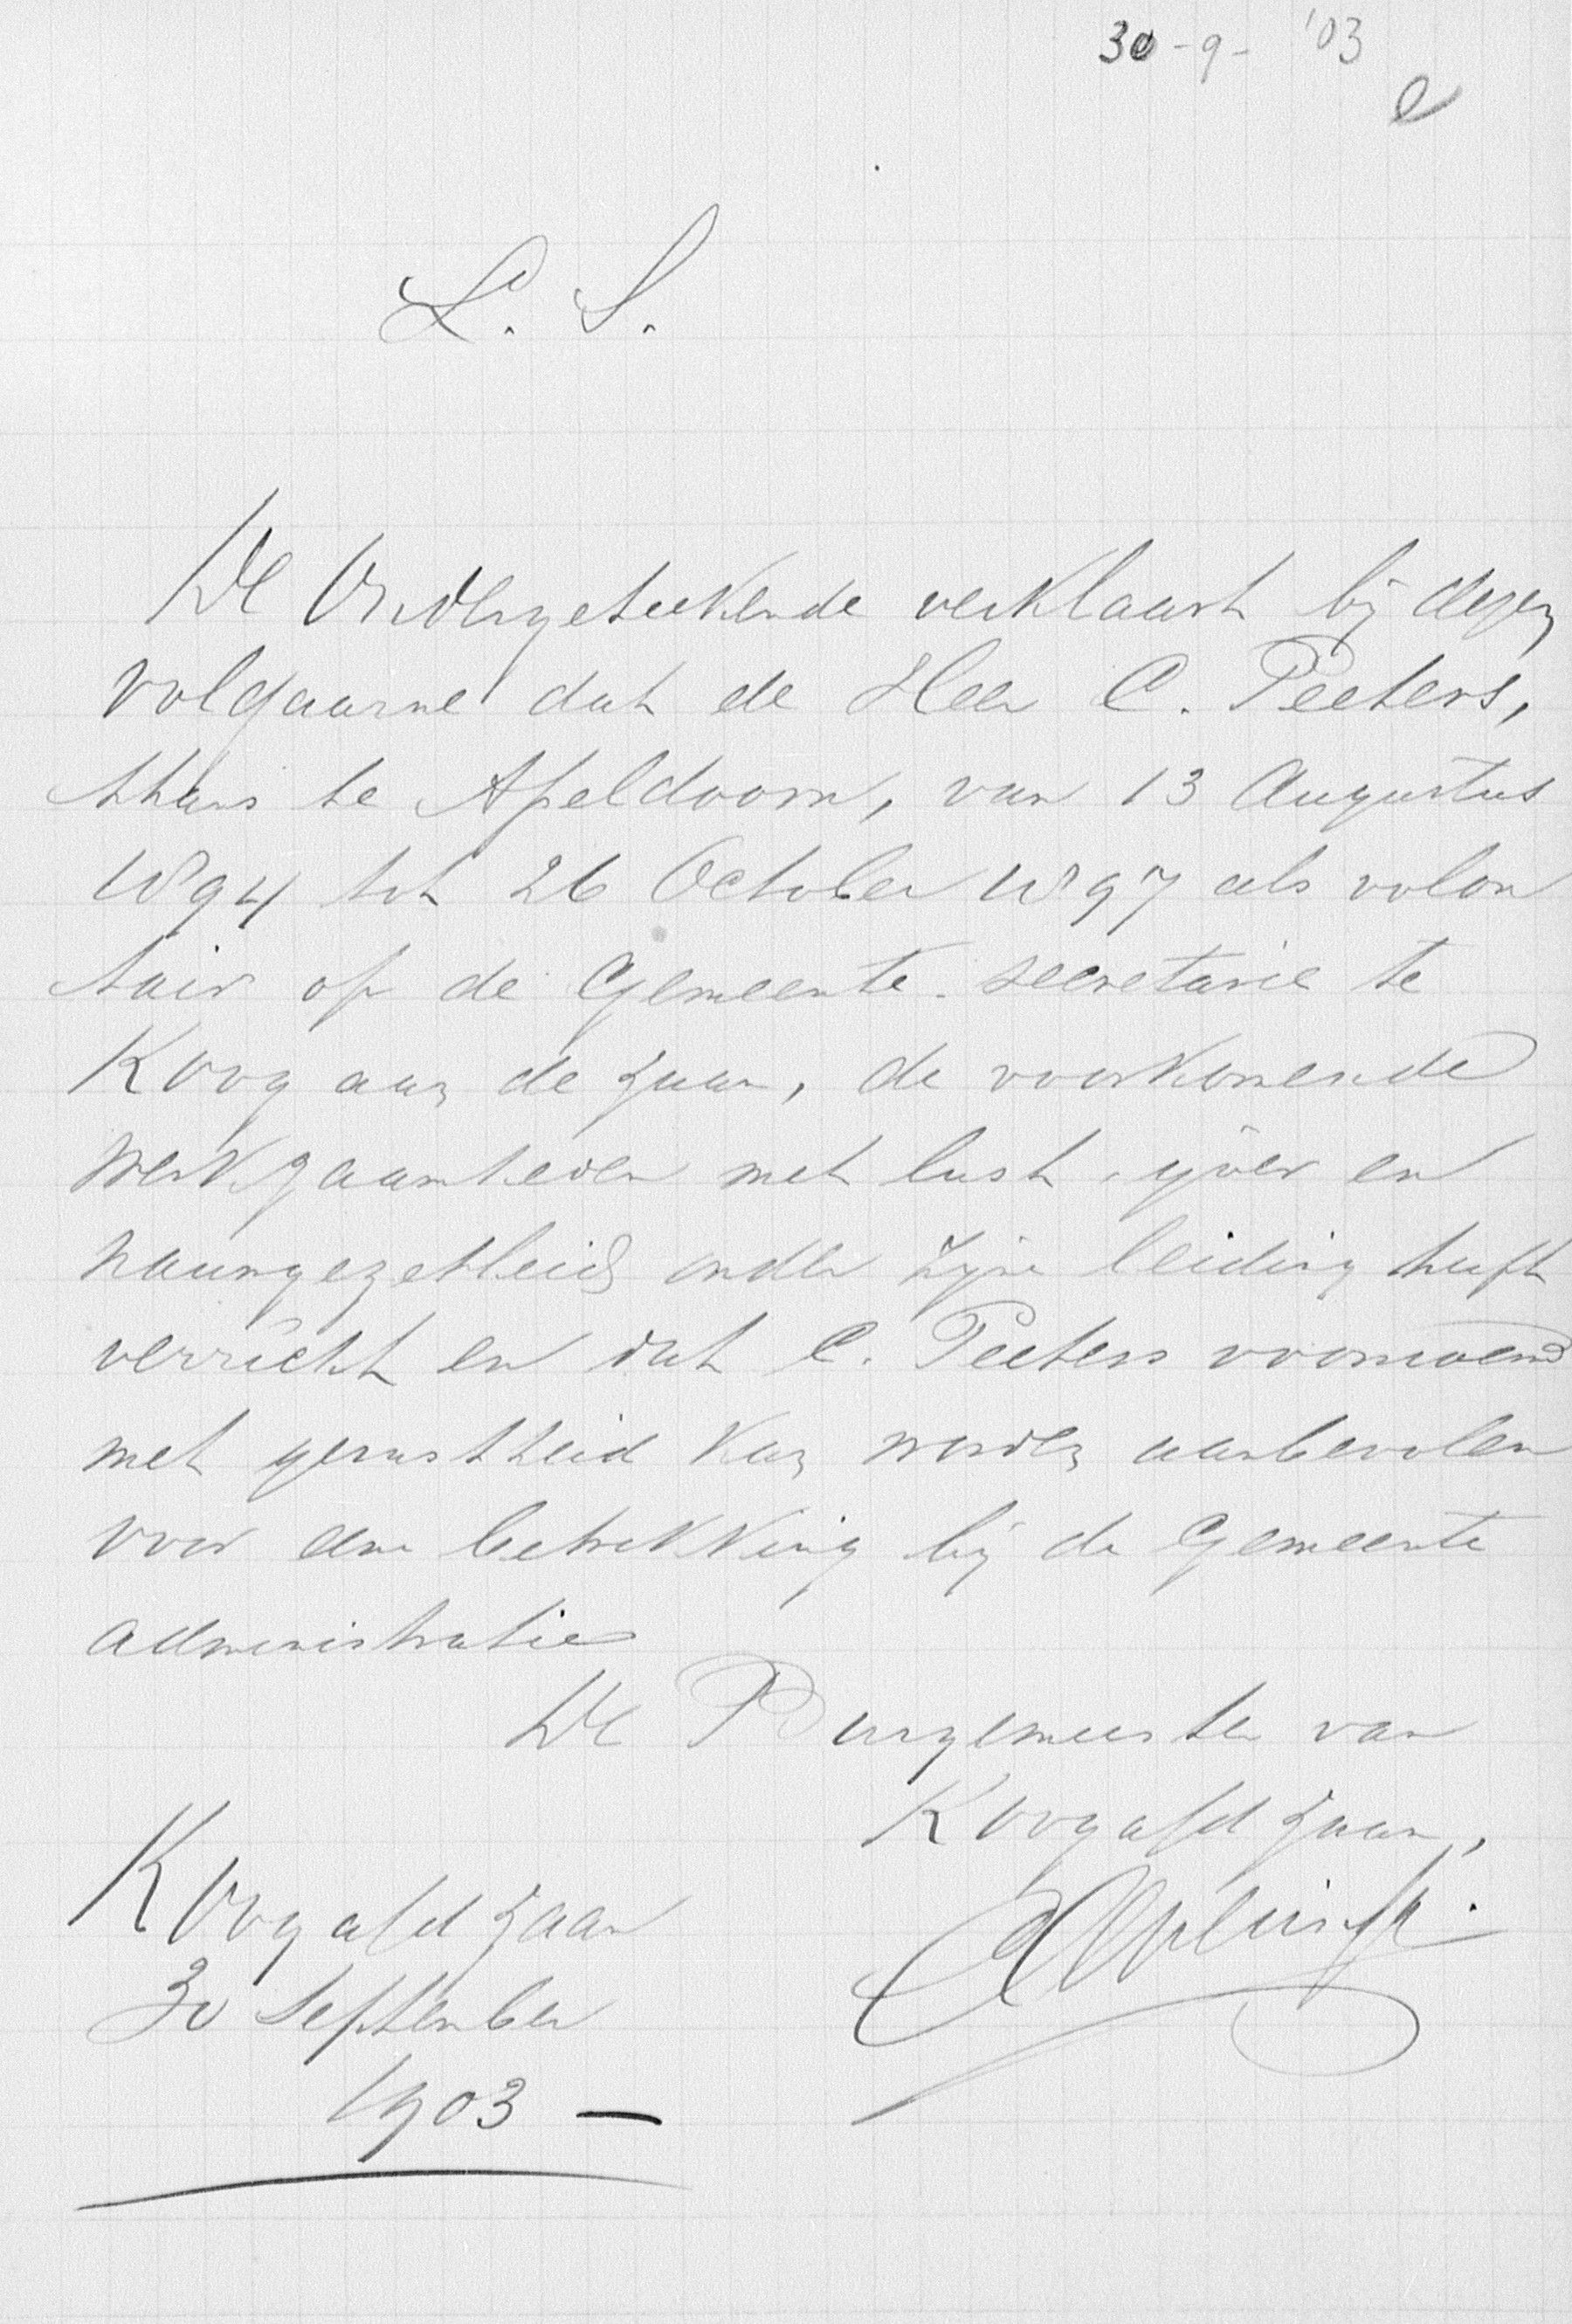 30-9-'03
L. S.
De Ondergeteekende verklaart bij dezen
volgaarne dat de Heer C. Peeters,
thans te Apeldoorn, van 13 Augustus
1894 tot 26 October 1897 als volon
tair op de Gemeente-secretarie te
Koog aan de Zaan, de voorkomende
werkzaamheden met lust, ijver en
nauwgezetheid onder zijne leiding heeft
verricht en dat C. Peeters voornoemd
met gerustheid kan worden aanbevolen
voor een betrekking bij de Gemeente
administratie
De Burgemeester van
Koog a/d Zaan,
Koog a/d Zaan
30 September
1903 —